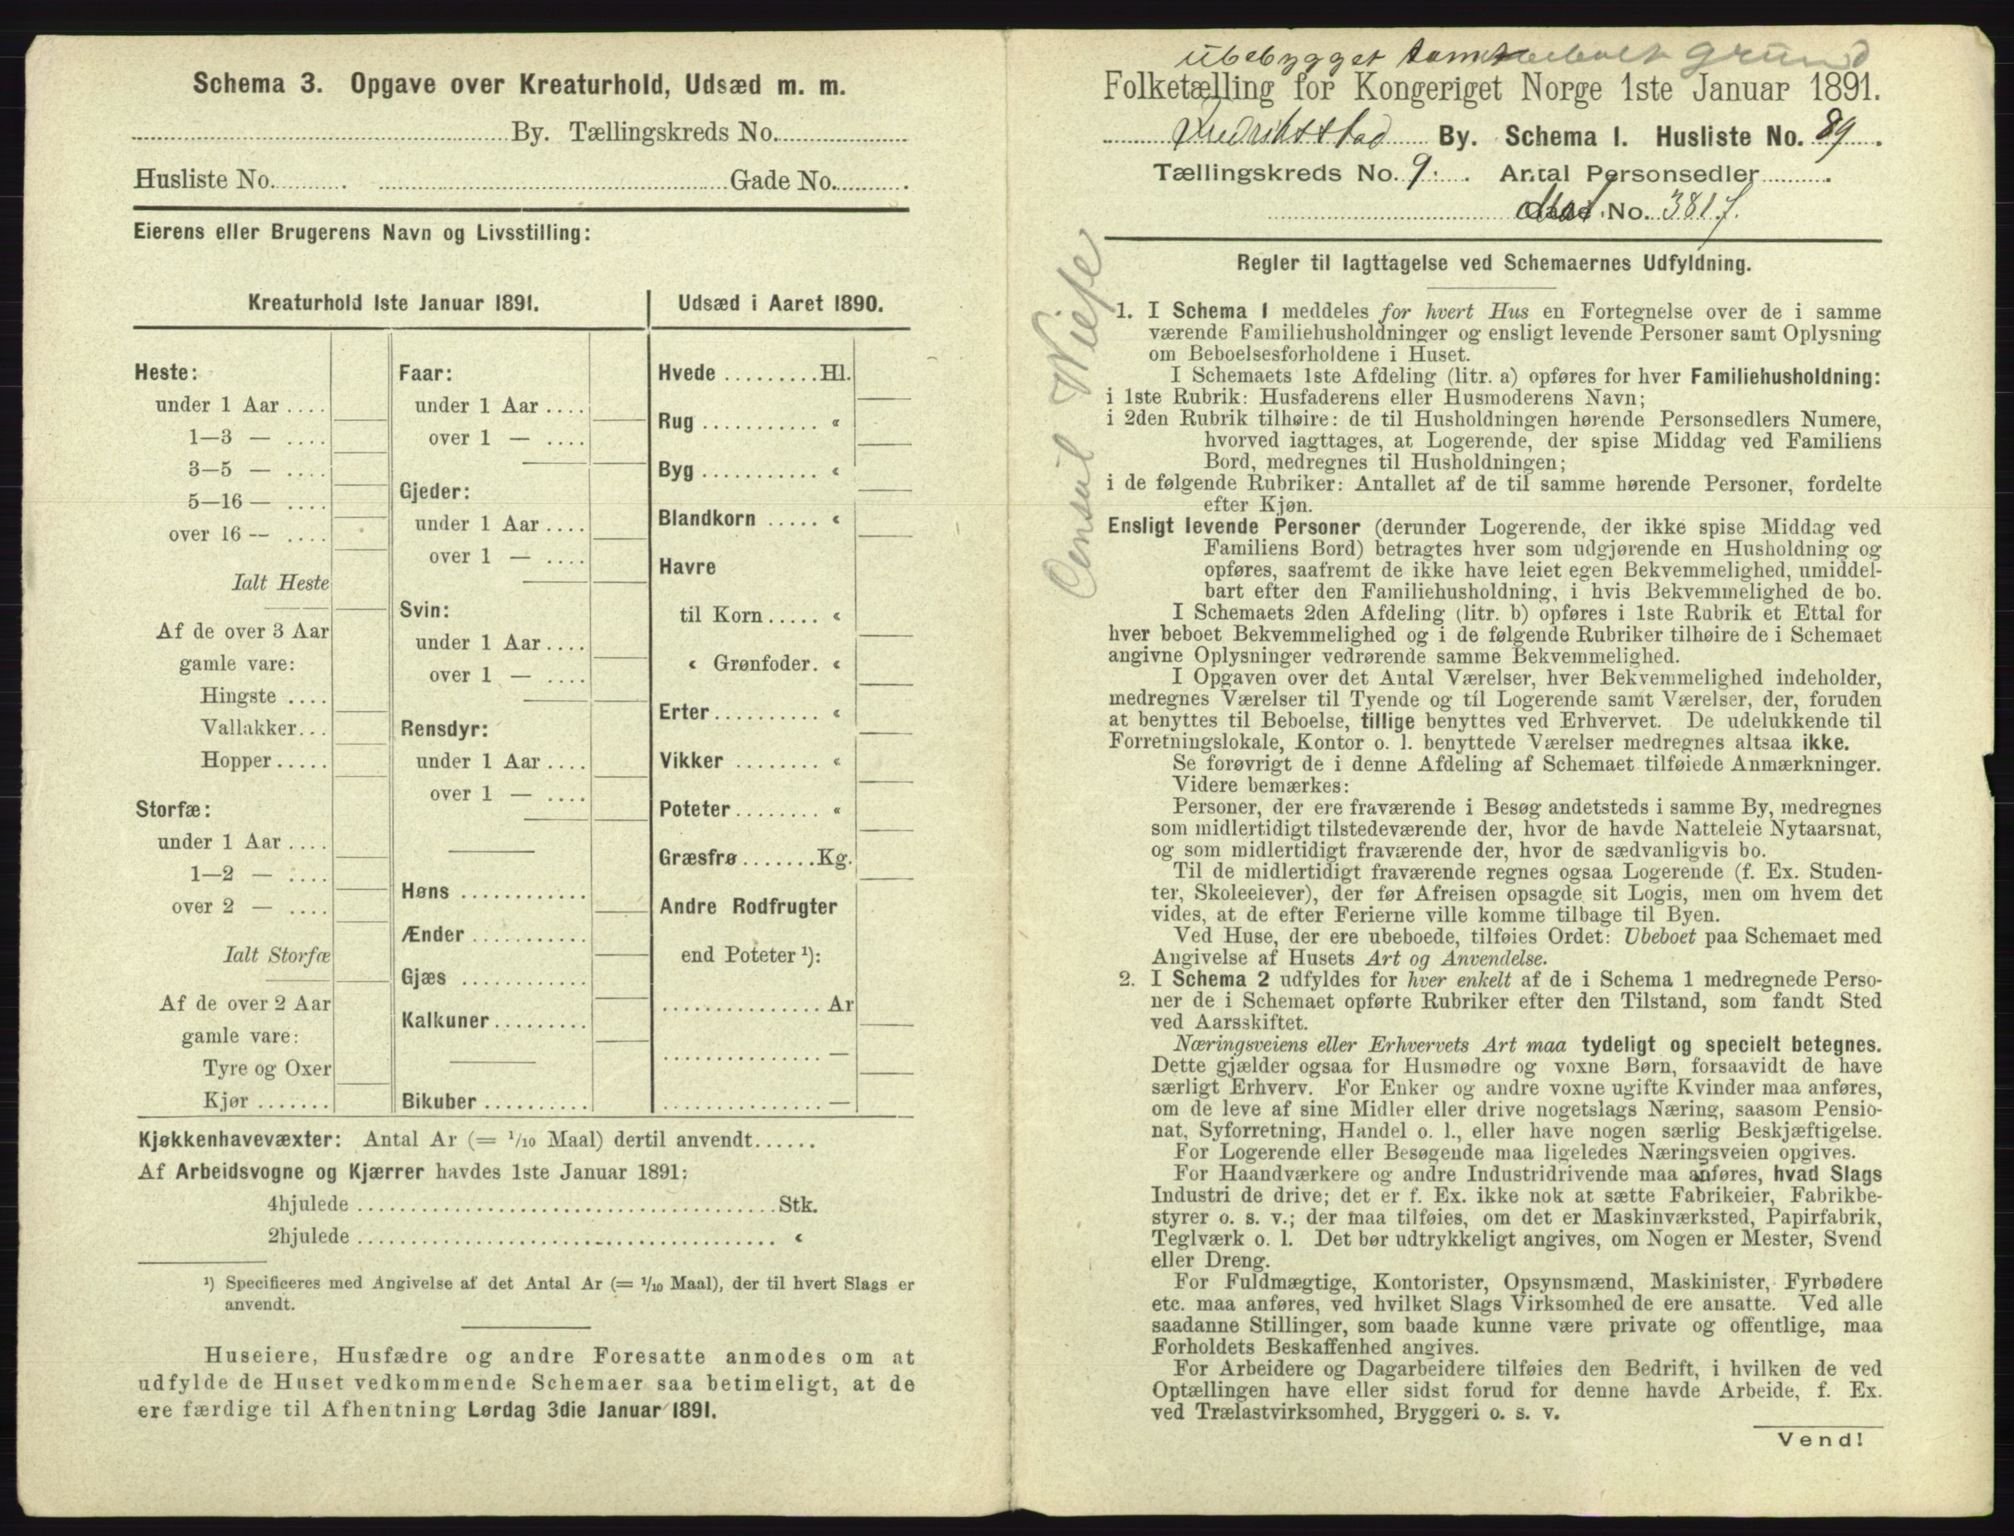 Schema 3. Opgave over Kreaturhold, Udsæd m. m.
By. Tællingskreds No.
Husliste No. Gade No.
Eierens eller Brugerens Navn og Livsstilling:
Kreaturhold 1ste Januar 1891.
Heste:
under 1 Aar ....
1—3 — ....
3—5 — ....
5—16 — ....
over 16 — ....
Ialt Heste
Af de over 3 Aar
gamle vare:
Hingste ....
Vallakker...
Hopper.....
Storfæ:
under 1 Aar ....
1—2 — ....
over 2 — ....
Ialt Storfæ
Af de over 2 Aar
gamle vare:
Tyre og Oxer
Kjør .......
Faar:
under 1 Aar ....
over 1 — ....
Gjeder:
under 1 Aar ....
over 1 — ....
Svin:
under 1 Aar ....
over 1 — ....
Rensdyr:
under 1 Aar ....
over 1 — ....
Høns ............
Ænder ...........
Gjæs ............
Kalkuner.........
Bikuber ..........
Udsæd i Aaret 1890.
Hvede .........Hl.
Rug .......... «
Byg .......... «
Blandkorn ..... «
Havre
til Korn ..... «
« Grønfoder. «
Erter.......... «
Vikker ........ «
Poteter........ «
Græsfrø.......Kg.
Andre Rodfrugter
end Poteter ¹):
...............Ar
...............—
...............—
Kjøkkenhavevæxter: Antal Ar (= 1/10 Maal) dertil anvendt......
Af Arbeidsvogne og Kjærrer havdes 1ste Januar 1891:
4hjulede ........................................Stk.
2hjulede ........................................ «
¹) Specificeres med Angivelse af det Antal Ar (= 1/10 Maal), der til hvert Slags er
anvendt.
Huseiere, Husfædre og andre Foresatte anmodes om at
udfylde de Huset vedkommende Schemaer saa betimeligt, at de
ere færdige til Afhentning Lørdag 3die Januar 1891.
ubebygget tomt grund
Folketælling for Kongeriget Norge 1ste Januar 1891.
Fredriksstad By. Schema 1. Husliste No. 89.
Tællingskreds No. 9. Antal Personsedler
No. 381 f.
Regler til Iagttagelse ved Schemaernes Udfyldning.
1. I Schema 1 meddeles for hvert Hus en Fortegnelse over de i samme
værende Familiehusholdninger og ensligt levende Personer samt Oplysning
om Beboelsesforholdene i Huset.
I Schemaets 1ste Afdeling (litr. a) opføres for hver Familiehusholdning:
i 1ste Rubrik: Husfaderens eller Husmoderens Navn;
i 2den Rubrik tilhøire: de til Husholdningen hørende Personsedlers Numere,
hvorved iagttages, at Logerende, der spise Middag ved Familiens
Bord, medregnes til Husholdningen;
i de følgende Rubriker: Antallet af de til samme hørende Personer, fordelte
efter Kjøn.
Ensligt levende Personer (derunder Logerende, der ikke spise Middag ved
Familiens Bord) betragtes hver som udgjørende en Husholdning og
opføres, saafremt de ikke have leiet egen Bekvemmelighed, umiddel-
bart efter den Familiehusholdning, i hvis Bekvemmelighed de bo.
I Schemaets 2den Afdeling (litr. b) opføres i 1ste Rubrik et Ettal for
hver beboet Bekvemmelighed og i de følgende Rubriker tilhøire de i Schemaet
angivne Oplysninger vedrørende samme Bekvemmelighed.
I Opgaven over det Antal Værelser, hver Bekvemmelighed indeholder,
medregnes Værelser til Tyende og til Logerende samt Værelser, der, foruden
at benyttes til Beboelse, tillige benyttes ved Erhvervet. De udelukkende til
Forretningslokale, Kontor o. l. benyttede Værelser medregnes altsaa ikke.
Se forøvrigt de i denne Afdeling af Schemaet tilføiede Anmærkninger.
Videre bemærkes:
Personer, der ere fraværende i Besøg andetsteds i samme By, medregnes
som midlertidigt tilstedeværende der, hvor de havde Natteleie Nytaarsnat,
og som midlertidigt fraværende der, hvor de sædvanligvis bo.
Til de midlertidigt fraværende regnes ogsaa Logerende (f. Ex. Studen-
ter, Skoleelever), der før Afreisen opsagde sit Logis, men om hvem det
vides, at de efter Ferierne ville komme tilbage til Byen.
Ved Huse, der ere ubeboede, tilføies Ordet: Ubeboet paa Schemaet med
Angivelse af Husets Art og Anvendelse.
2. I Schema 2 udfyldes for hver enkelt af de i Schema 1 medregnede Perso-
ner de i Schemaet opførte Rubriker efter den Tilstand, som fandt Sted
ved Aarsskiftet.
Næringsveiens eller Erhvervets Art maa tydeligt og specielt betegnes.
Dette gjælder ogsaa for Husmødre og voxne Børn, forsaavidt de have
særligt Erhverv. For Enker og andre voxne ugifte Kvinder maa anføres,
om de leve af sine Midler eller drive nogetslags Næring, saasom Pensio-
nat, Syforretning, Handel o. l., eller have nogen særlig Beskjæftigelse.
For Logerende eller Besøgende maa ligeledes Næringsveien opgives.
For Haandværkere og andre Industridrivende maa anføres, hvad Slags
Industri de drive; det er f. Ex. ikke nok at sætte Fabrikeier, Fabrikbe-
styrer o. s. v.; der maa tilføies, om det er Maskinværksted, Papirfabrik,
Teglværk o. l. Det bør udtrykkeligt angives, om Nogen er Mester, Svend
eller Dreng.
For Fuldmægtige, Kontorister, Opsynsmænd, Maskinister, Fyrbødere
etc. maa anføres, ved hvilket Slags Virksomhed de ere ansatte. Ved alle
saadanne Stillinger, som baade kunne være private og offentlige, maa
Forholdets Beskaffenhed angives.
For Arbeidere og Dagarbeidere tilføies den Bedrift, i hvilken de ved
Optællingen have eller sidst forud for denne havde Arbeide, f. Ex.
ved Trælastvirksomhed, Bryggeri o. s. v.
Vend!